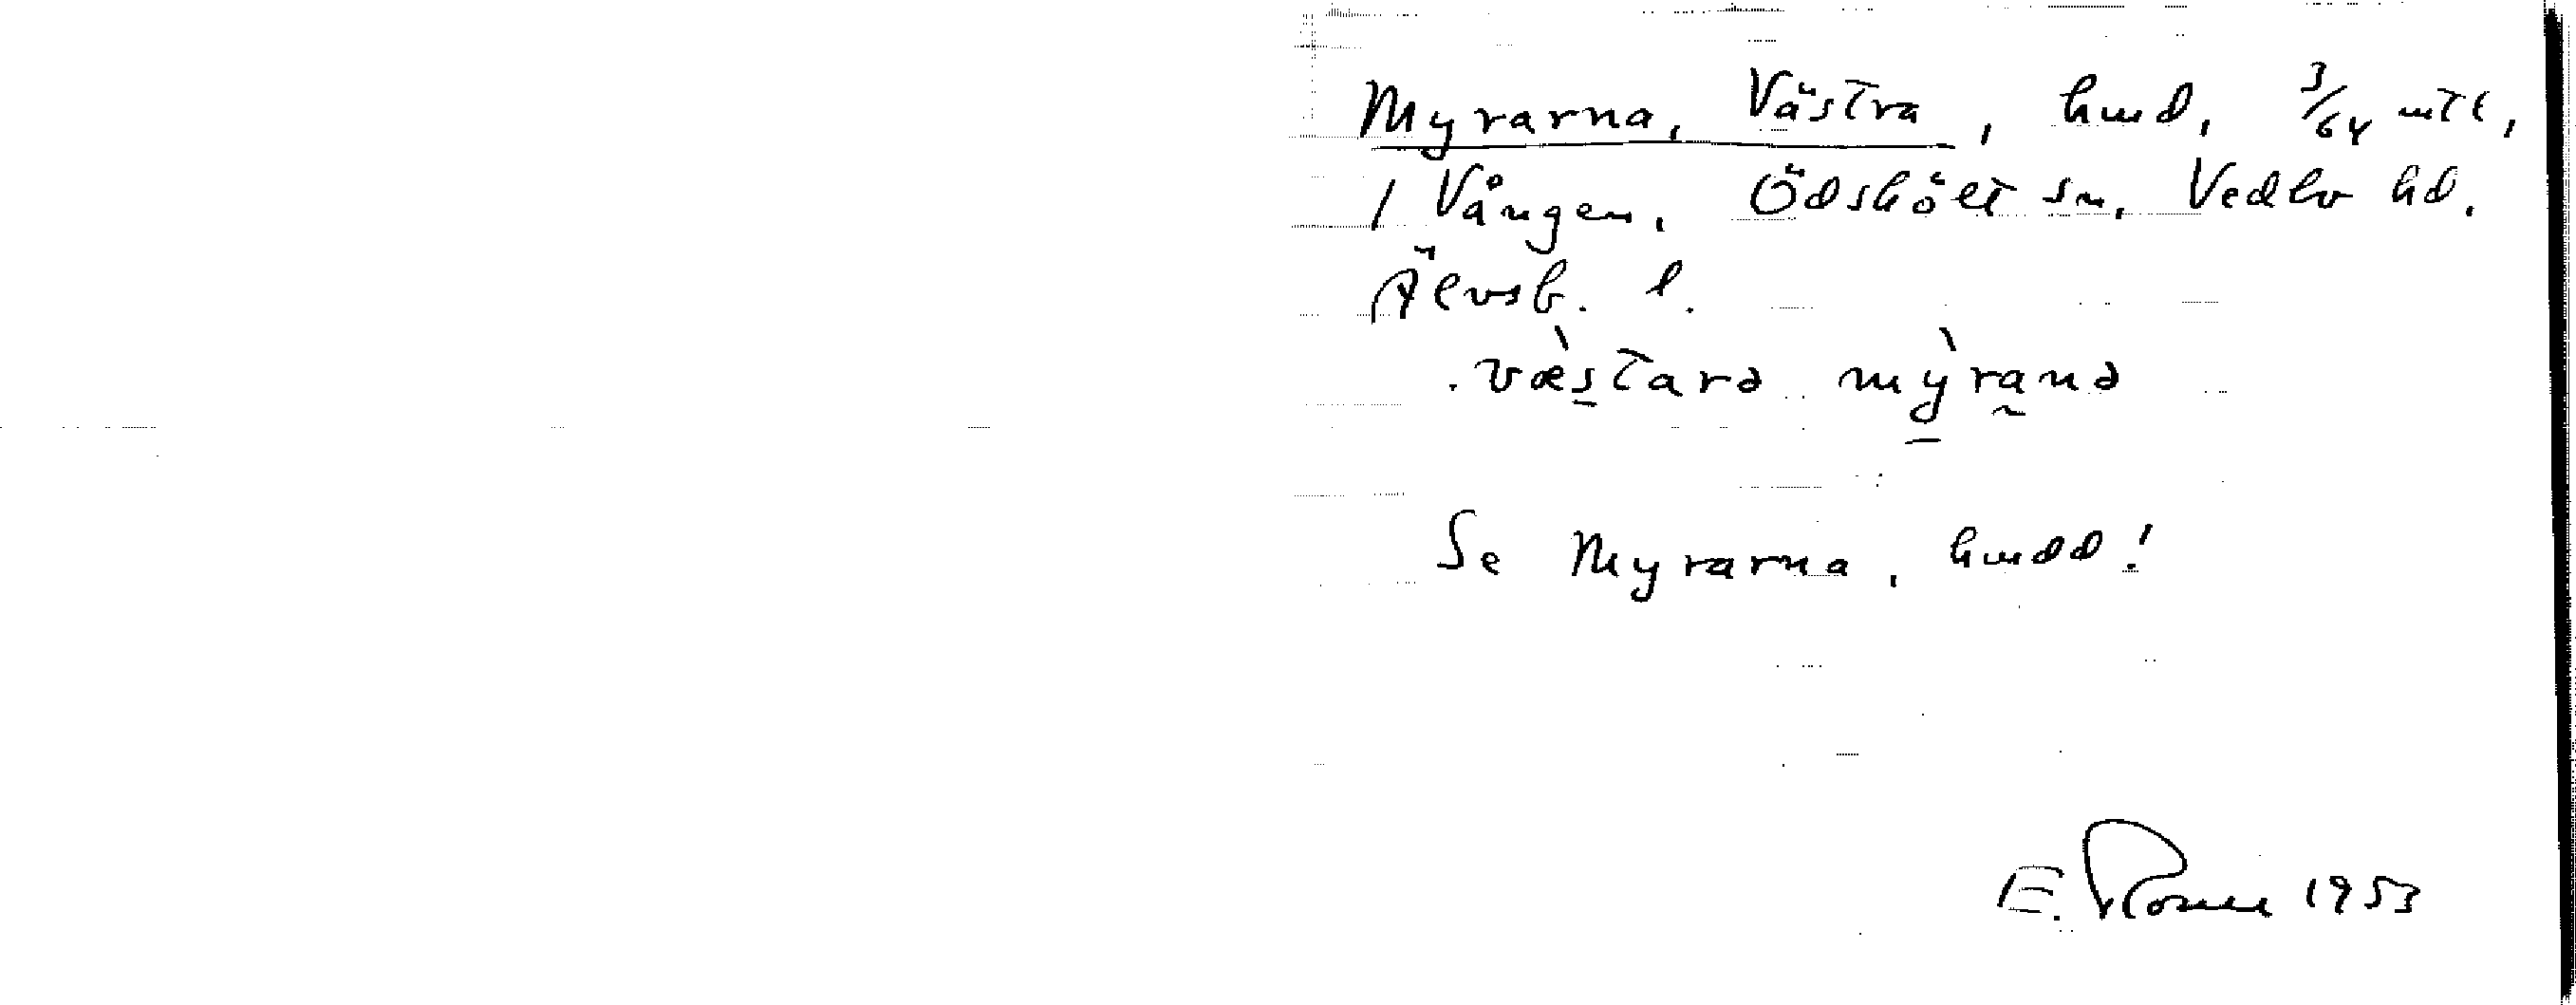 Myrarna, Västra, hmd, 3/64 mtl,
1 Vången, Ödskölt sn, Vedbo hd.
Älvsb. l.
væ̀stara mỳrana
Se Myrarna, hmdd!
E. Rosell 1953